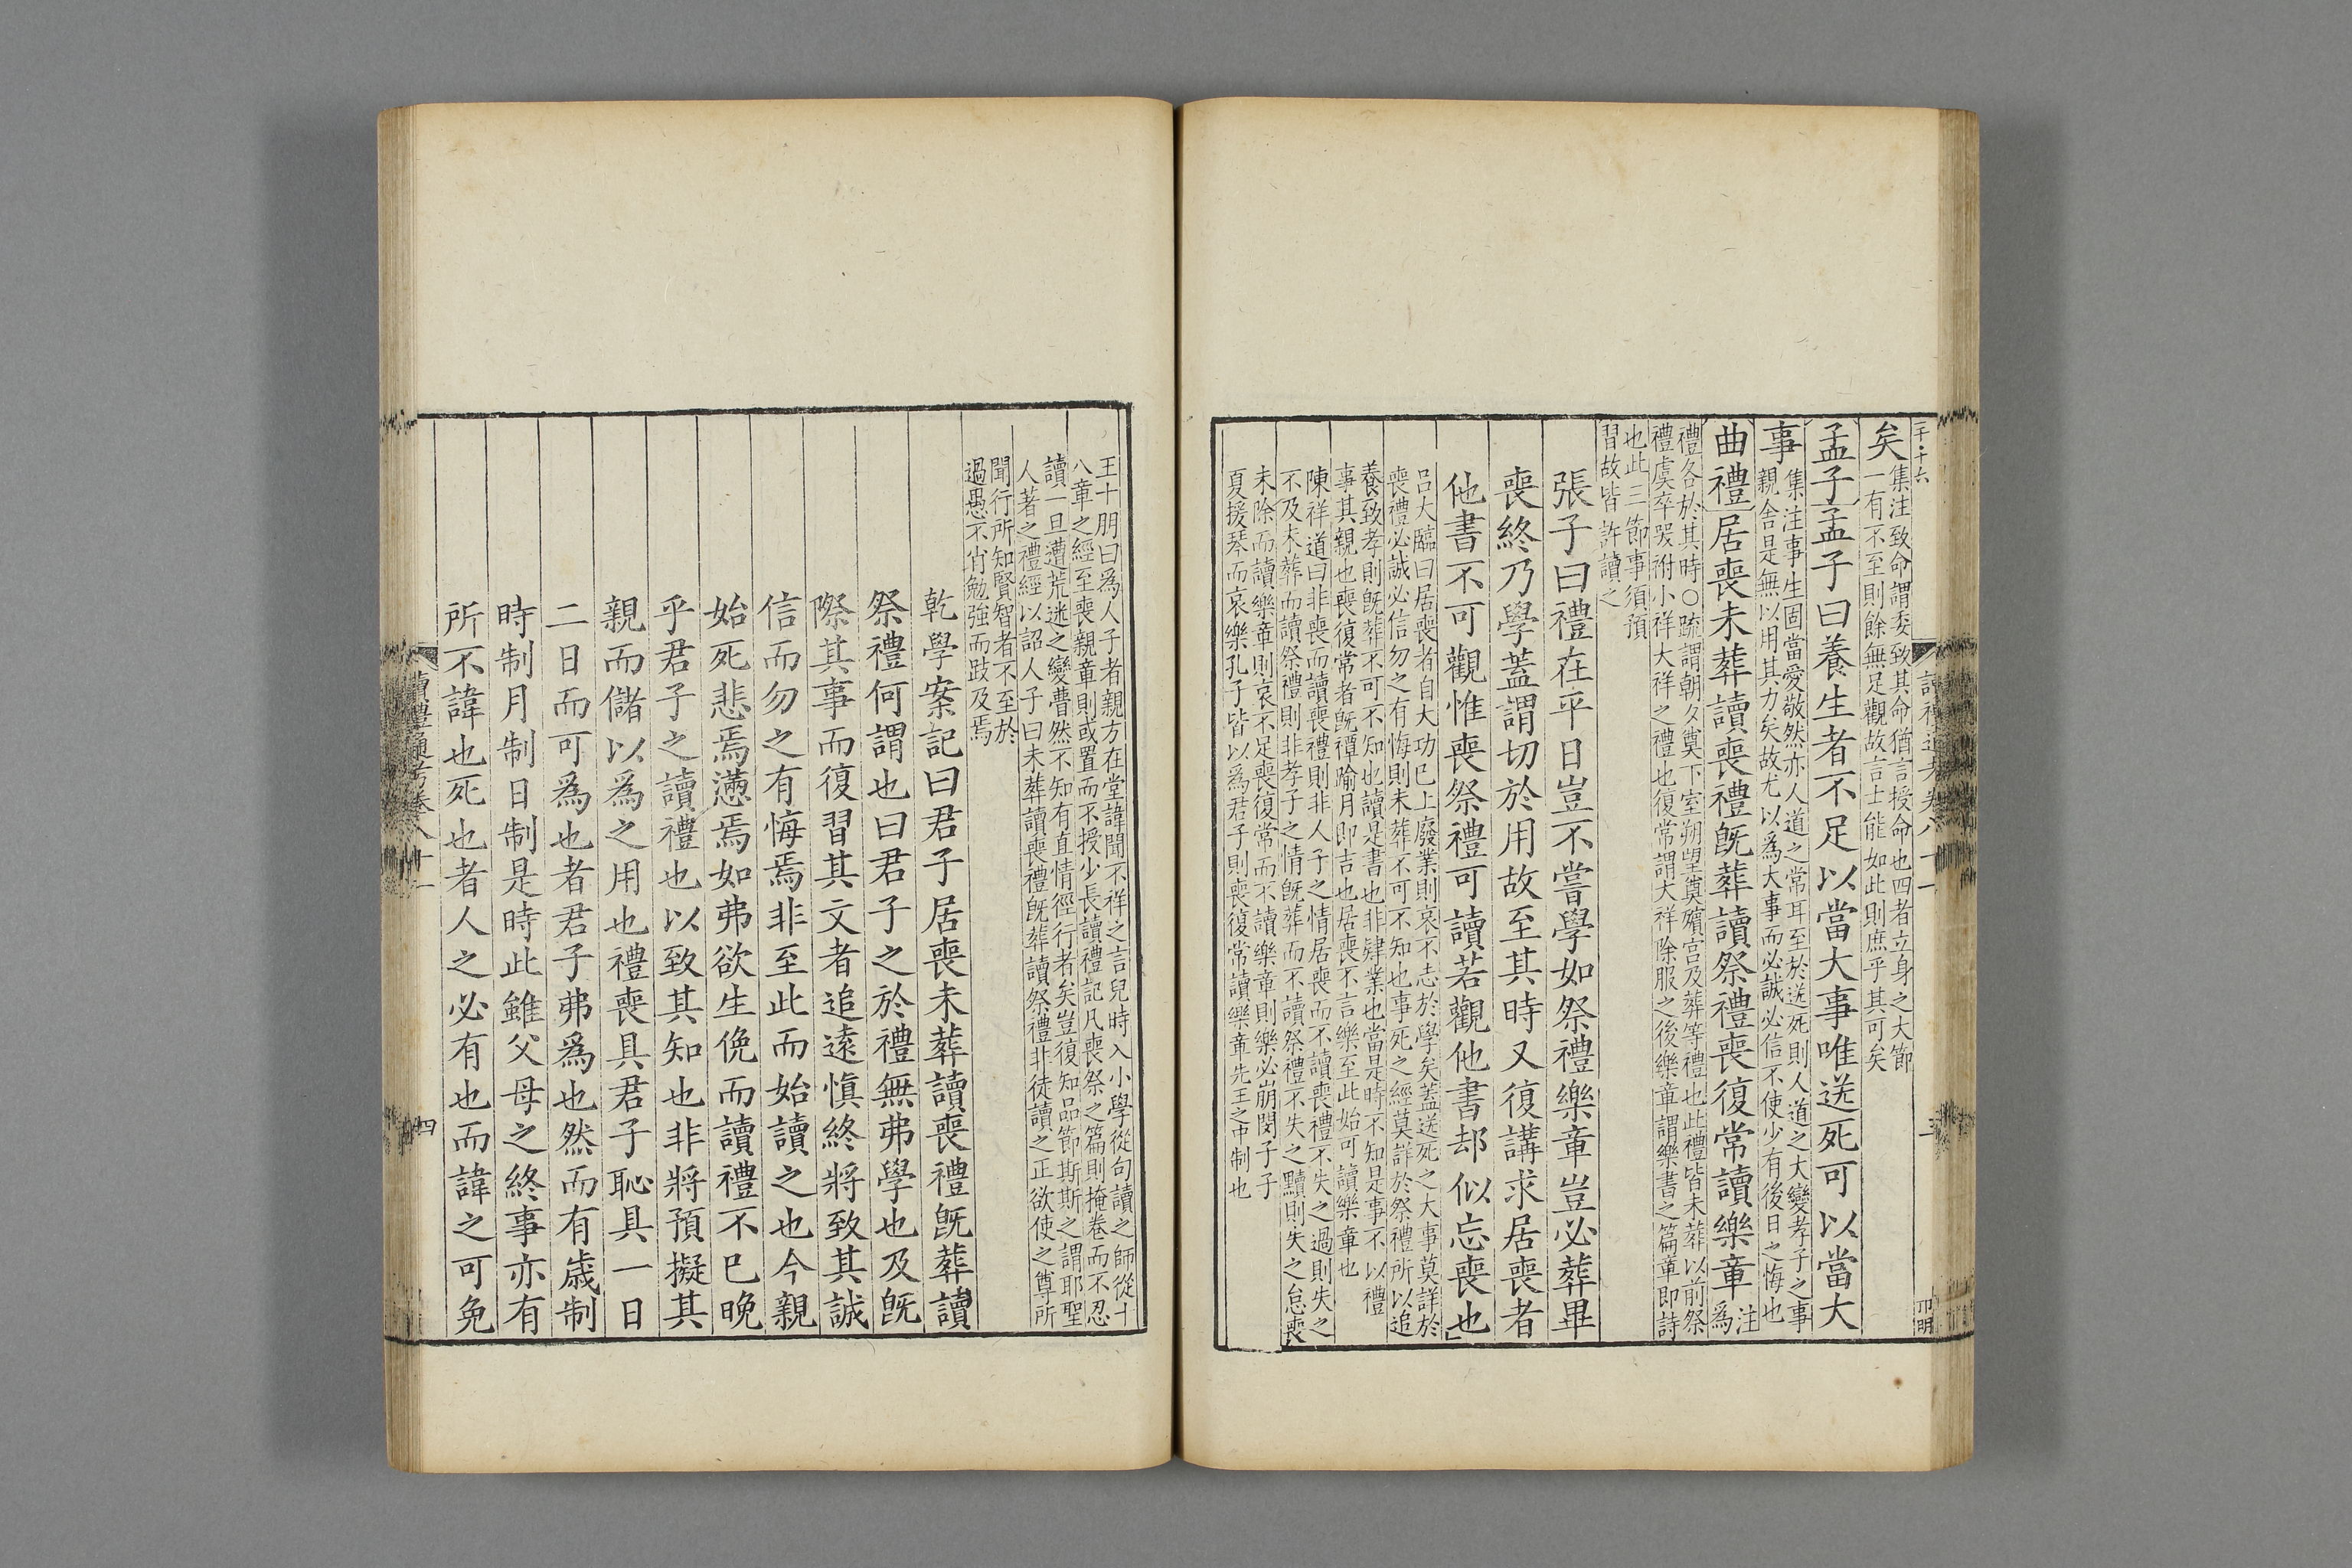 二千六
讀禮通考卷八十一
三
卬明
矣集注致命謂委致其命猶言授命也四者立身之大節
一有不至則餘無足觀故言士能如此則庶乎其可矣
孟子孟子曰養生者不足以當大事唯送死可以當大
事集注事生固當愛敬然亦人道之常耳至於送死則人道之大變孝子之事
親舍是無以用其力矣故尤以為大事而必誠必信不使少有後日之悔也
曲禮居喪未葬讀喪禮旣葬讀祭禮喪復常讀樂章注
為
禮各於其時○疏謂朝夕奠下室朔望奠殯宮及葬等禮也此禮皆未葬以前祭
禮虞卒哭祔小祥大祥之禮也復常謂大祥除服之後樂章謂樂書之篇章即詩
也此三節事須預
習故皆許讀之
張子曰禮在平日豈不嘗學如祭禮樂章豈必葬畢
喪終乃學蓋謂切於用故至其時又復講求居喪者
他書不可觀惟喪祭禮可讀若觀他書却似忘喪也
呂大臨曰居喪者自大功已上廢業則哀不志於學矣蓋送死之大事莫詳於
喪禮必誠必信勿之有悔則未葬不可不知也事死之經莫詳於祭禮所以追
養致孝則旣葬不可不知也讀是書也非肄業也當是時不知是事不以禮
事其親也喪復常者旣禫踰月即吉也居喪不言樂至此始可讀樂章也
陳祥道曰非喪而讀喪禮則非人子之情居喪而不讀喪禮不失之過則失之
不及未葬而讀祭禮則非孝子之情旣葬而不讀祭禮不失之黷則失之怠喪
未除而讀樂章則哀不足喪復常而不讀樂章則樂必崩閔子子
夏援琴而哀樂孔子皆以為君子則喪復常讀樂章先王之中制也
王十朋曰爲人子者親方在堂諱聞不祥之言兒時入小學從句讀之師從十
八章之經至喪親章則或置而不授少長讀禮記凡喪祭之篇則掩卷而不忍
讀一旦遭荒迷之變曹然不知有直情徑行者矣豈復知品節斯斯之謂耶聖
人著之禮經以詔人子曰未葬讀喪禮旣葬讀祭禮非徒讀之正欲使之尊所
聞行所知賢智者不至於
過愚不肖勉強而跂及焉
乾學案記曰君子居喪未葬讀喪禮旣葬讀
祭禮何謂也曰君子之於禮無弗學也及旣
際其事而復習其文者追遠愼終將致其誠
信而勿之有悔焉非至此而始讀之也今親
始死悲焉懣焉如弗欲生俛而讀禮不已晚
乎君子之讀禮也以致其知也非將預擬其
親而儲以爲之用也禮喪具君子恥具一日
二日而可爲也者君子弗爲也然而有歲制
時制月制日制是時此雖父母之終事亦有
所不諱也死也者人之必有也而諱之可免
讀禮通考卷八十一
四